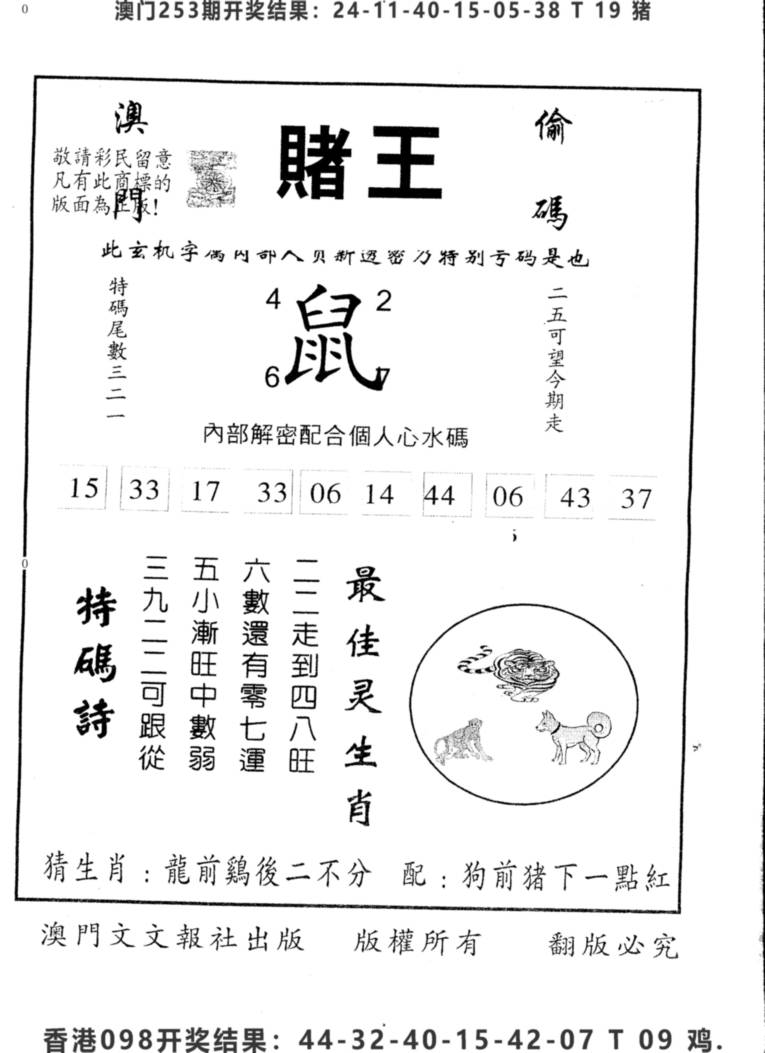 澳门253期开奖结果：24-11-40-15-05-38 T 19 猪
澳門
敬請彩民留意
凡有此商標的
版面為正版!
賭王
偷碼
此玄机字属内部人员新透密乃特别号码是也
特碼尾數三二一
4
2
鼠
6
7
二五可望今期走
內部解密配合個人心水碼
15 33 17 33 06 14 44 06 43 37
最佳灵生肖
二二走到四八旺
六數還有零七運
五小漸旺中數弱
三九二二可跟從
特碼詩
猜生肖：龍前鷄後二不分 配：狗前猪下一點紅
澳門文文報社出版 版權所有 翻版必究
香港098开奖结果：44-32-40-15-42-07 T 09 鸡.